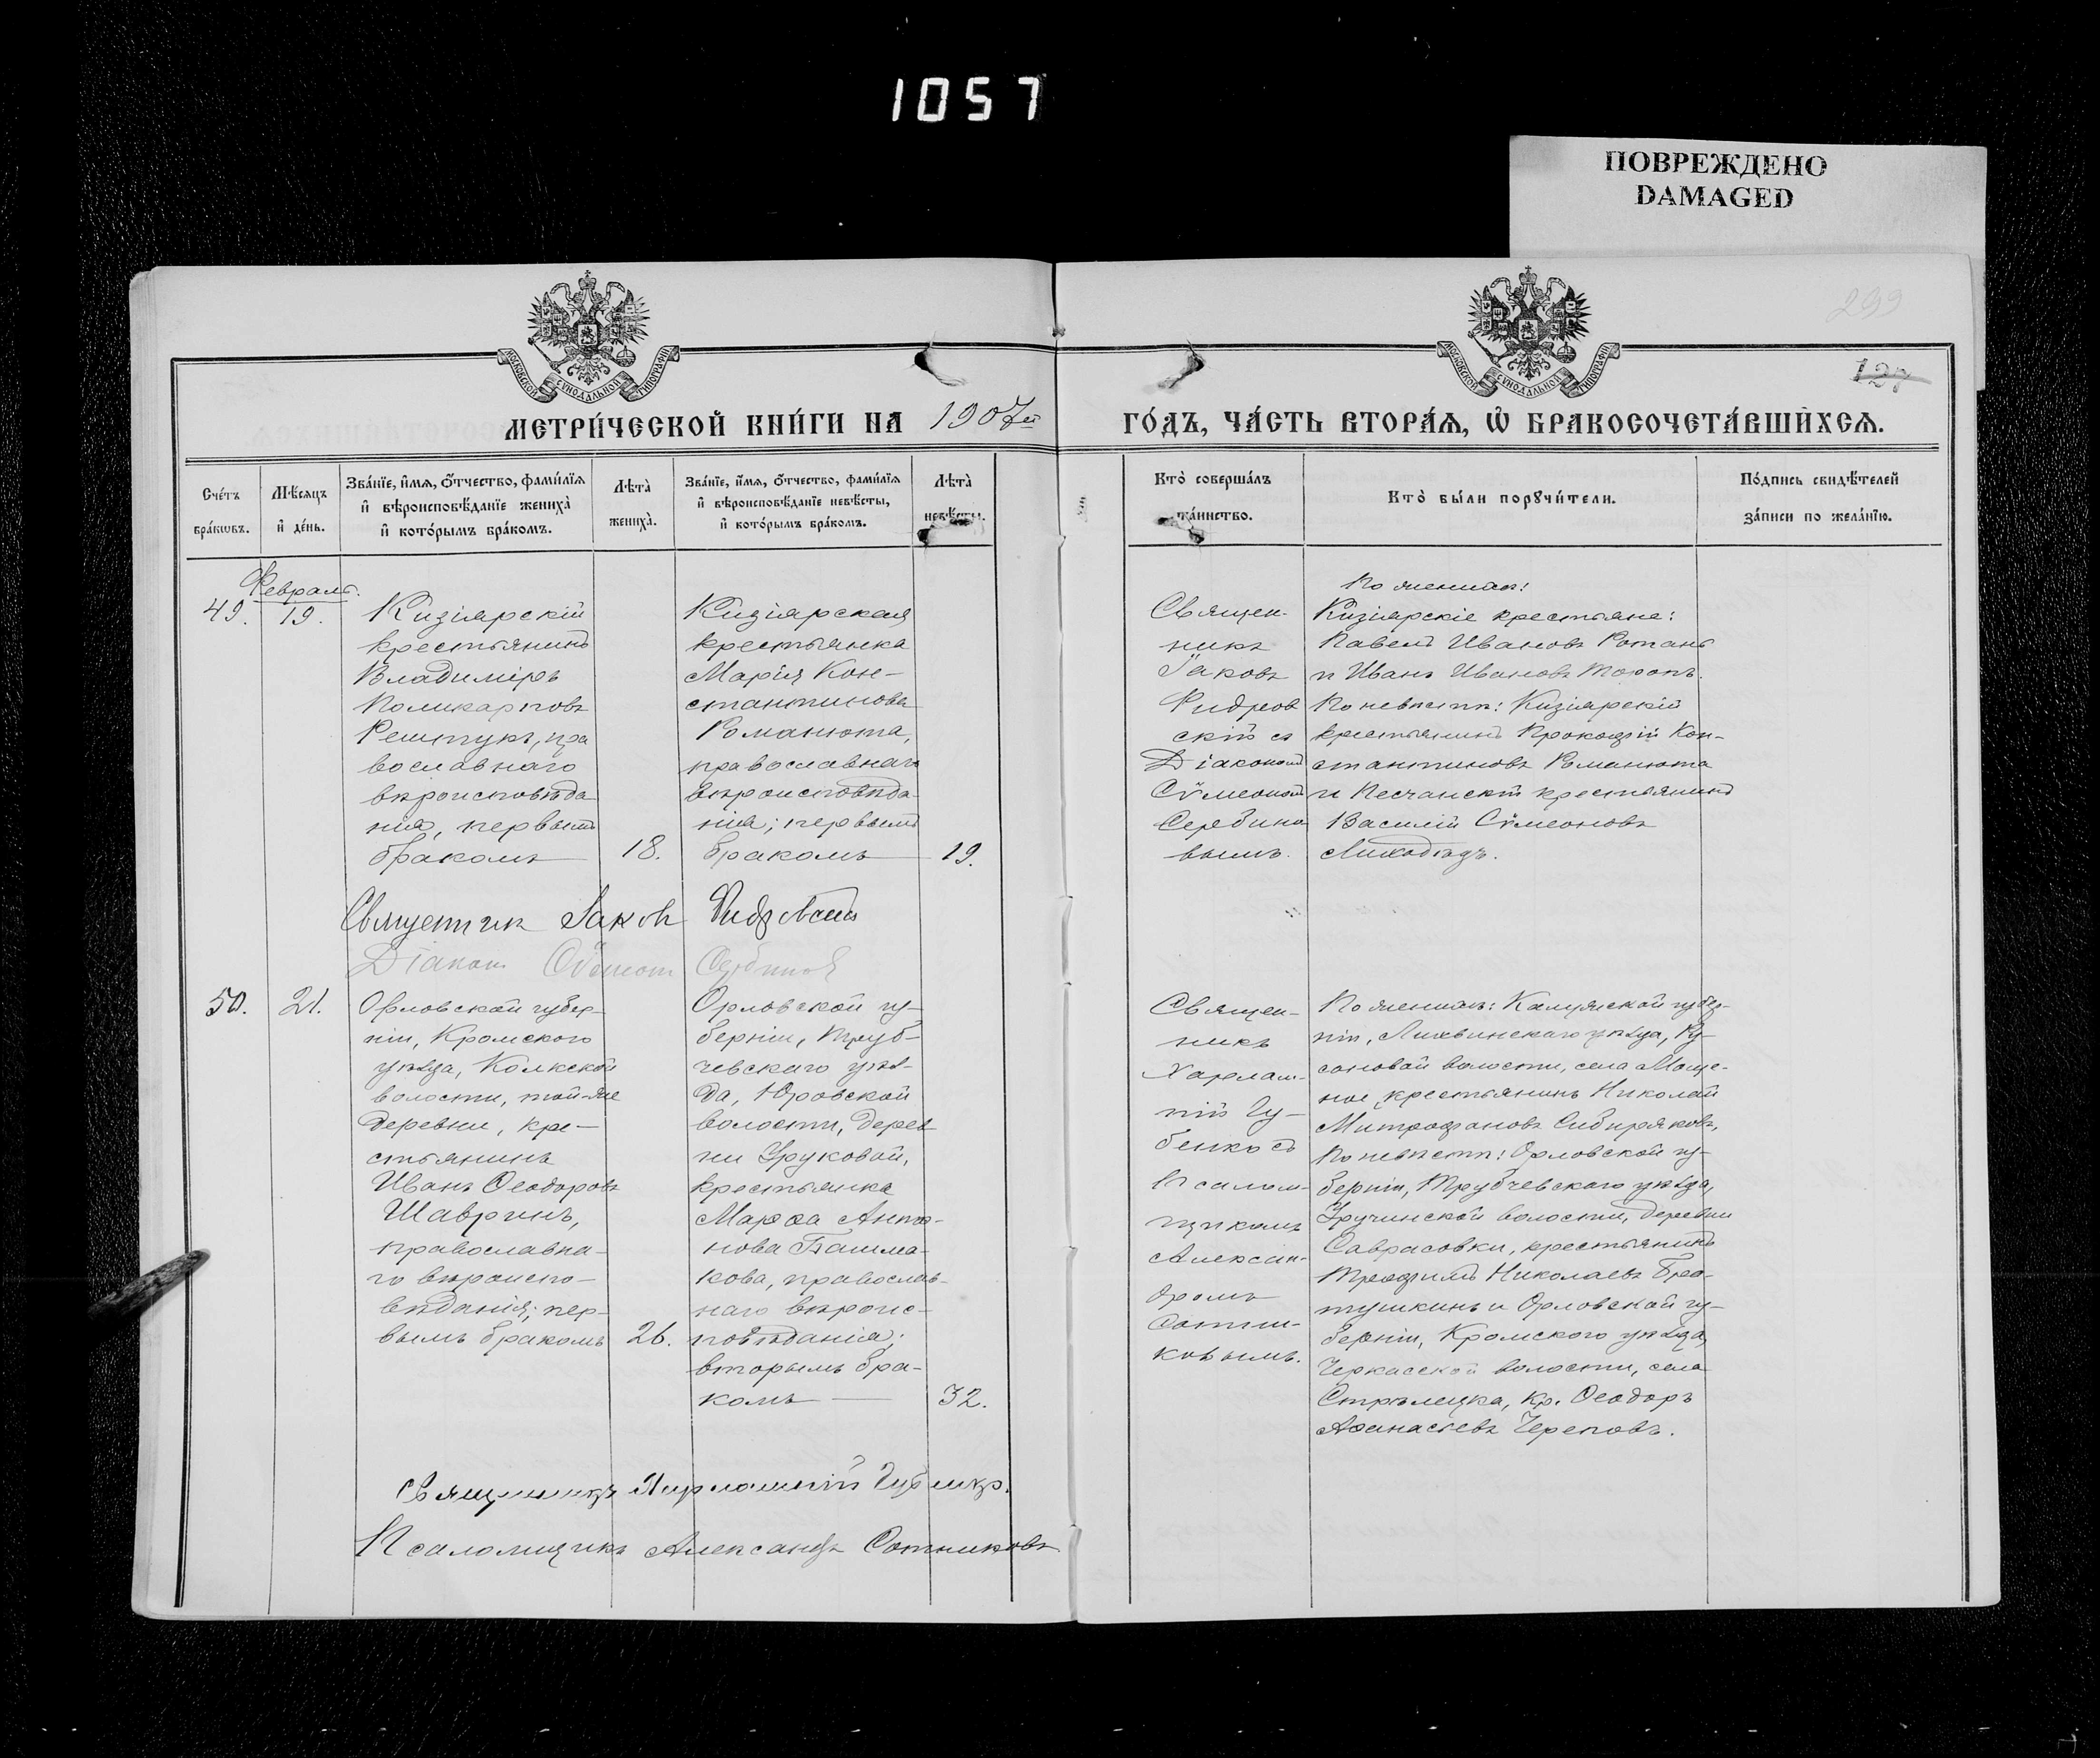 1057
ПОВРЕЖДЕНО
DAMAGED
299
127
МОСКОВСКОЙ СѴНОДАЛЬНОЙ ТИПОГРАФІИ
МОСКОВСКОЙ СѴНОДАЛЬНОЙ ТИПОГРАФІИ
МЕТРИ́ЧЕСКОЙ КНИ́ГИ НА 1907й ГО́ДЪ, ЧА́СТЬ ВТОРА́Ѧ, Ѡ҆ БРАКОСОЧЕТА́ВШИХСѦ.
Сче́тъ
бра́кωвъ.
Мѣ́сѧцъ
и҆ де́нь.
Зва́нїе, и҆́мѧ, ѻ҆́тчество, фами́лїѧ
и҆ вѣроисповѣ́данїе жениха̀
и҆ кото́рымъ бра́комъ.
Лѣта̀
жениха̀.
Зва́нїе, и҆́мѧ, ѻ҆́тчество, фами́лїѧ
и҆ вѣроисповѣ́данїе невѣ́сты,
и҆ кото́рымъ бра́комъ.
Лѣта̀
невѣ́сты.
Кто̀ соверша́лъ
та́инство.
Кто̀ бы́ли порꙋчи́тели.
По́дпись свидѣ́телей
за́писи по жела́нїю.
Февраль.
49.
19.
Кизіярскій
крестьянинъ
Владиміръ
Поликарповъ
Решпукъ, пра
вославнаго
вѣроисповѣда
нія, первымъ
бракомъ
18.
Кизіярская
крестьянка
Марія Кон-
стантинова
Романюта,
православнаго
вѣроисповѣда-
нія; первымъ
бракомъ
19.
Священ-
никъ
Іаковъ
Фидров
скій съ
Діакономъ
Сѵмеономъ
Сербино
вымъ.
По женихѣ:
Кизіярскіе крестьяне:
Павелъ Ивановъ Ротань
и Иванъ Ивановъ Торопъ.
По невѣстѣ: Кизіярскій
крестьянинъ Прокофій Кон-
стантиновъ Романюта
и Песчанскій крестьянинъ
Василій Сѵмеоновъ
Лиходѣдъ.
Священникъ Іаковъ Фидровскій
Діаконъ Сѵмеонъ Сербиновъ
50.
21.
Орловской губер-
ніи, Кромского
уѣзда, Колкской
волости, той-же
деревни, кре-
стьянинъ
Иванъ Ѳеодоровъ
Шавринъ,
православна-
го вѣроиспо-
вѣданія; пер-
вымъ бракомъ
26.
Орловской гу-
берніи, Труб-
чевскаго уѣз-
да, Юровской
волости, дерев
ни Уруковой,
крестьянка
Марѳа Анто-
нова Башма-
кова, православ-
наго вѣроис-
повѣданія;
вторымъ бра-
комъ
32.
Священ-
никъ
Харлам-
пій Гу-
бенко съ
Псалом-
щикомъ
Алексан-
дромъ
Сотни-
ковымъ.
По женихѣ: Калужской губер-
ніи, Лихвинскаго уѣзда, Ру-
соновой волости, села Моще-
ное, крестьянинъ Николай
Митрофановъ Сибиряковъ,
По невѣстѣ: Орловской гу-
берніи, Трубчевскаго уѣзда,
Уручинской волости, деревни
Саврасовки, крестьянинъ
Трофимъ Николаевъ Бра-
тушкинъ и Орловской гу-
берніи, Кромского уѣзда,
Черкасской волости, села
Стрѣлецка, кр. Ѳеодоръ
Аѳанасьевъ Череповъ.
Священникъ Харлампій Губенко.
Псаломщикъ Александръ Сотниковъ